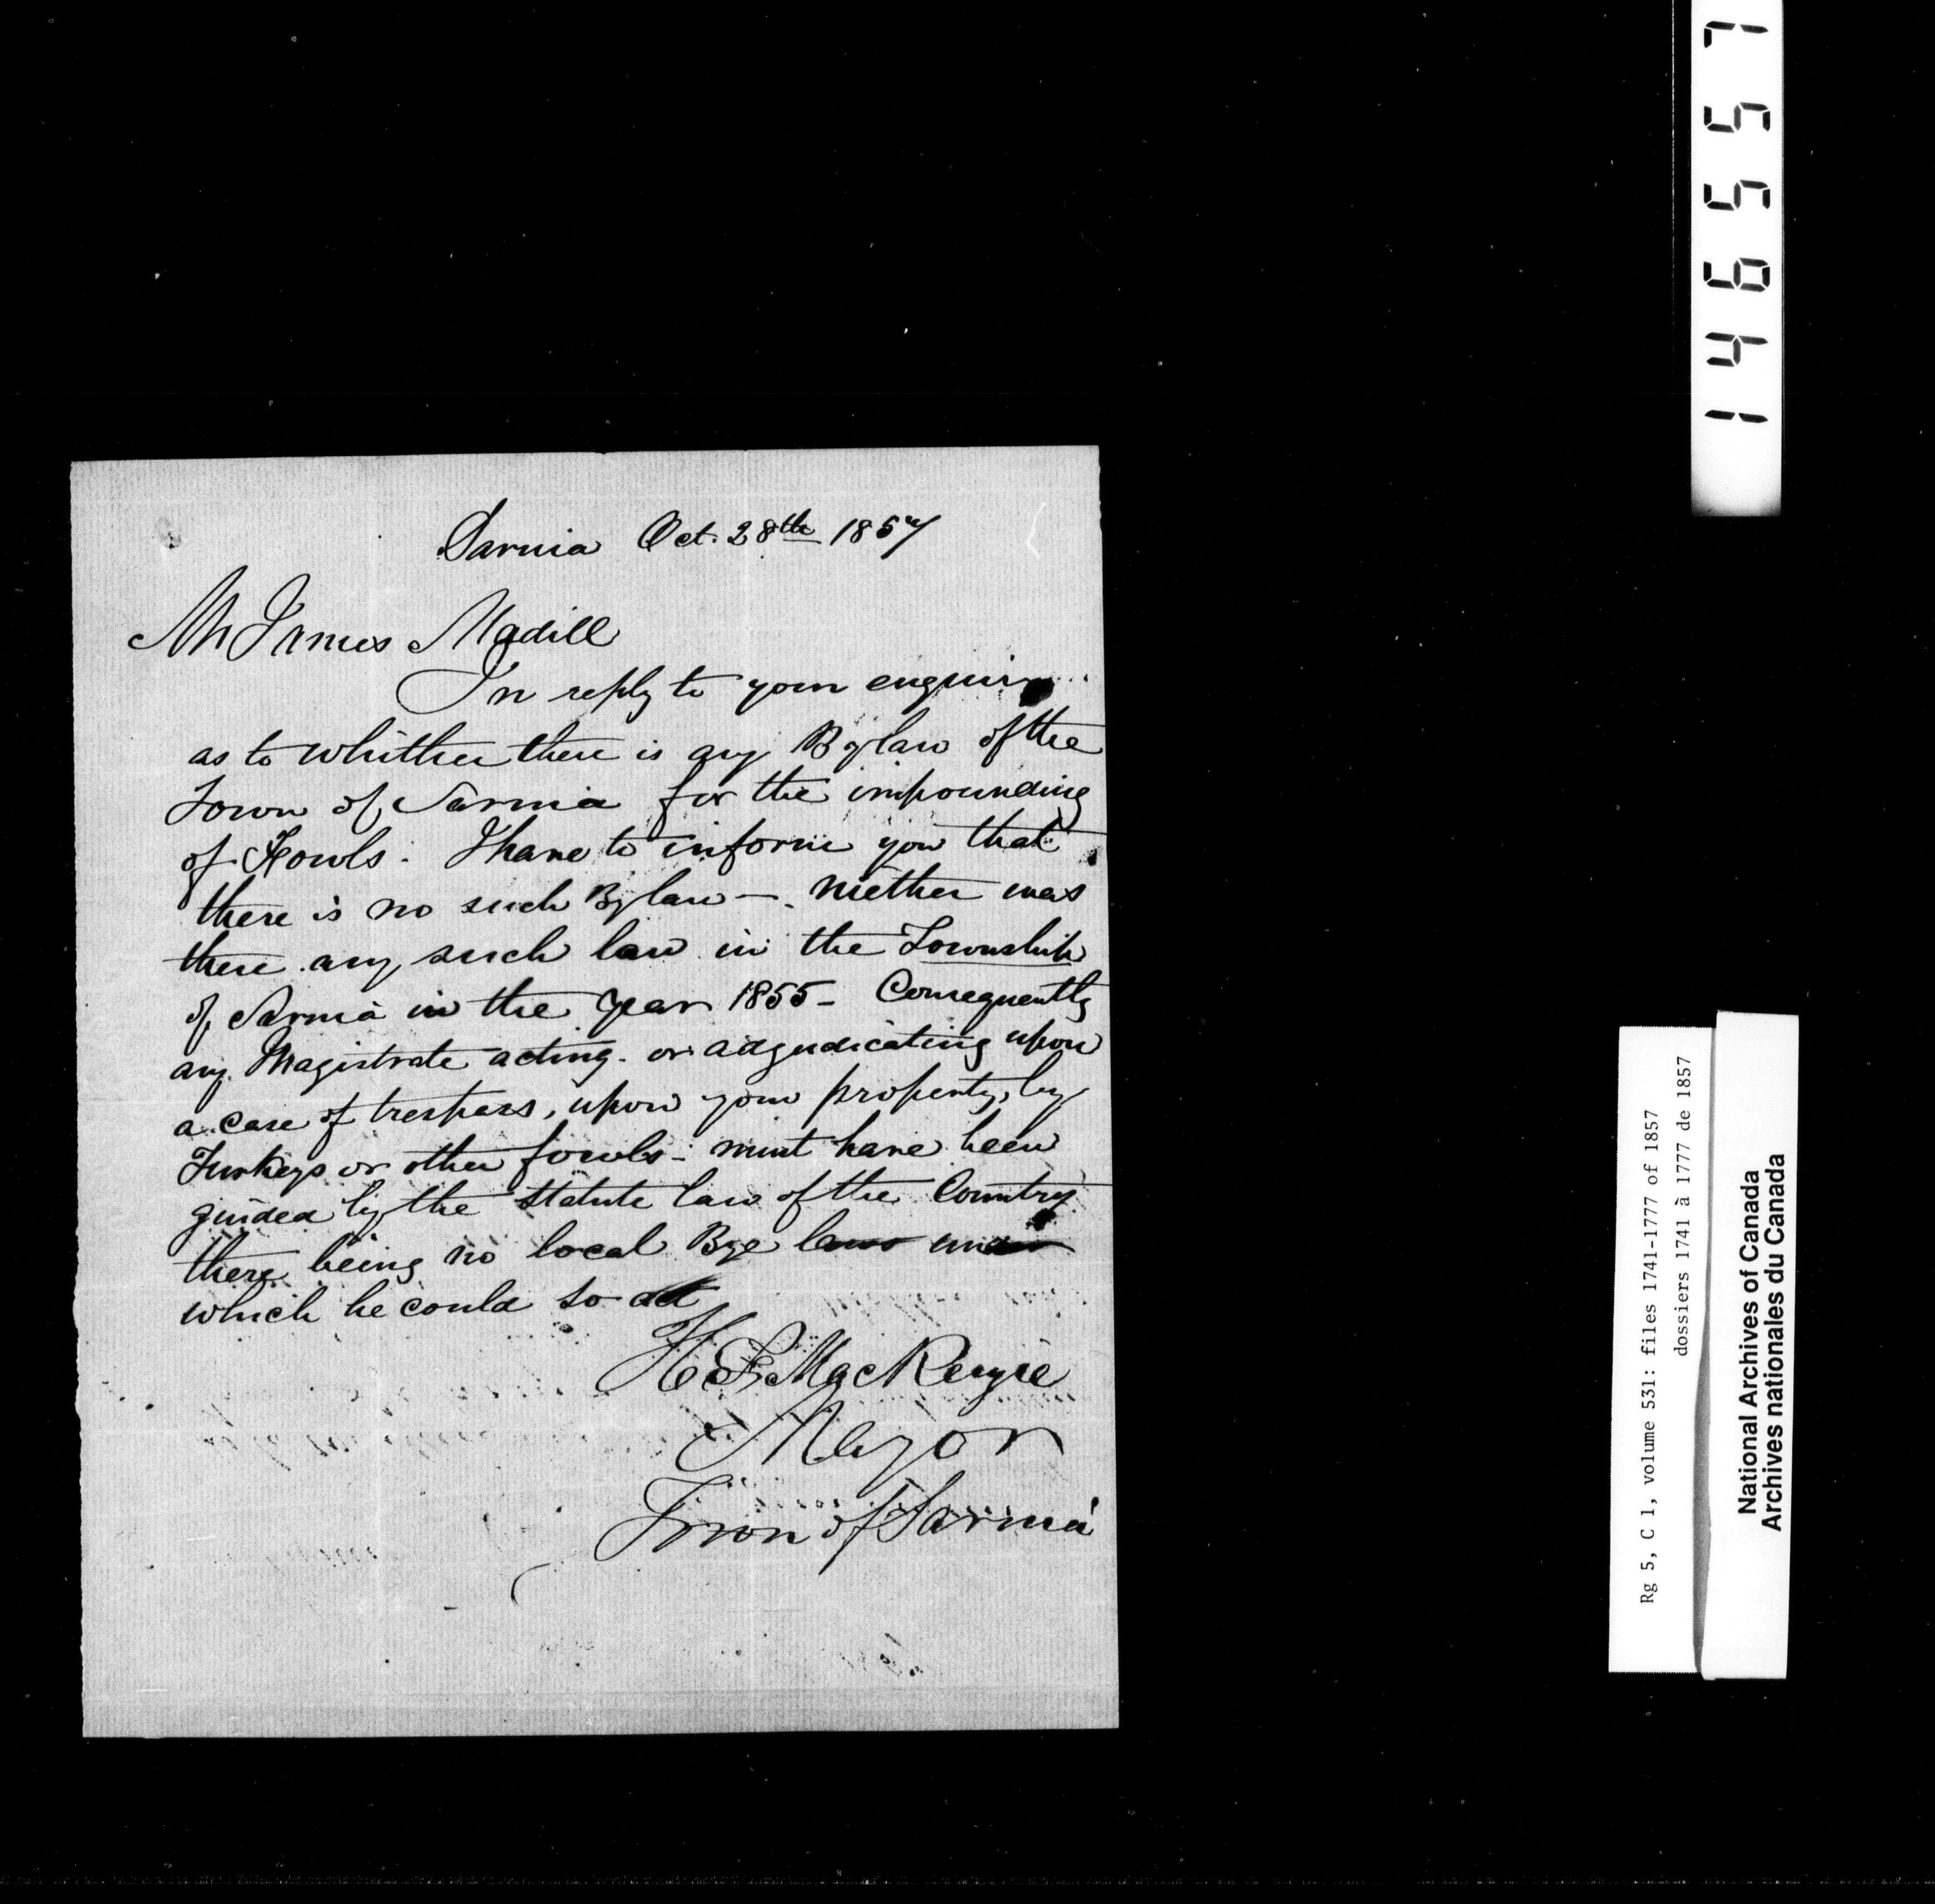 Sarnia Oct. 28th 1857
Mr James Madill
In reply to your enquiry
as to whither there is any Bylaw of the
Town of Sarnia for the impounding
of Fowls. I have to inform you that
there is no such Bylaw —. niether was
there any such law in the Township
of Sarnia in the year 1855 - Consequently
any Magistrate acting. or adjudicating upon
a case of trespass, upon your property, by
Turkeys or other fowls - must have been
guided by the Statute law of the Country
there being no local Bye law under
which he could so act
H F MacKenzie
Mayor
Town of Sarnia
146557
Rg 5, C 1, volume 531: files 1741-1777 of 1857
dossiers 1741 à 1777 de 1857
National Archives of Canada
Archives nationales du Canada